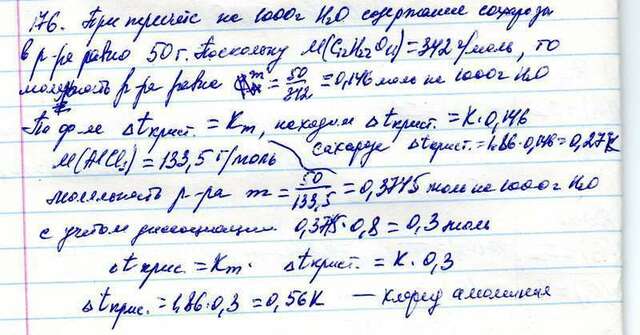 176. При пересчёте на 1000г H₂O содержание сахарозы
в р-ре равно 50г. Поскольку M(C₁₂H₂₂O₁₁)=342 г/моль, то
моляльность р-ра равна m = 50/342 = 0,146 моль на 1000г H₂O
По ф-ле Δtкрист. = Km, находим Δtкрист. = K·0,146
M(AlCl₃) = 133,5 г/моль сахароза Δtкрист. = 1,86·0,146=0,27K
моляльность р-ра m = 50/133,5 = 0,3745 моль на 1000г H₂O
с учётом диссоциации 0,375·0,8 = 0,3 моль
Δtкрис. = Km. Δtкрист. = K·0,3
Δtкрис. = 1,86·0,3 = 0,56K — хлорид алюминия